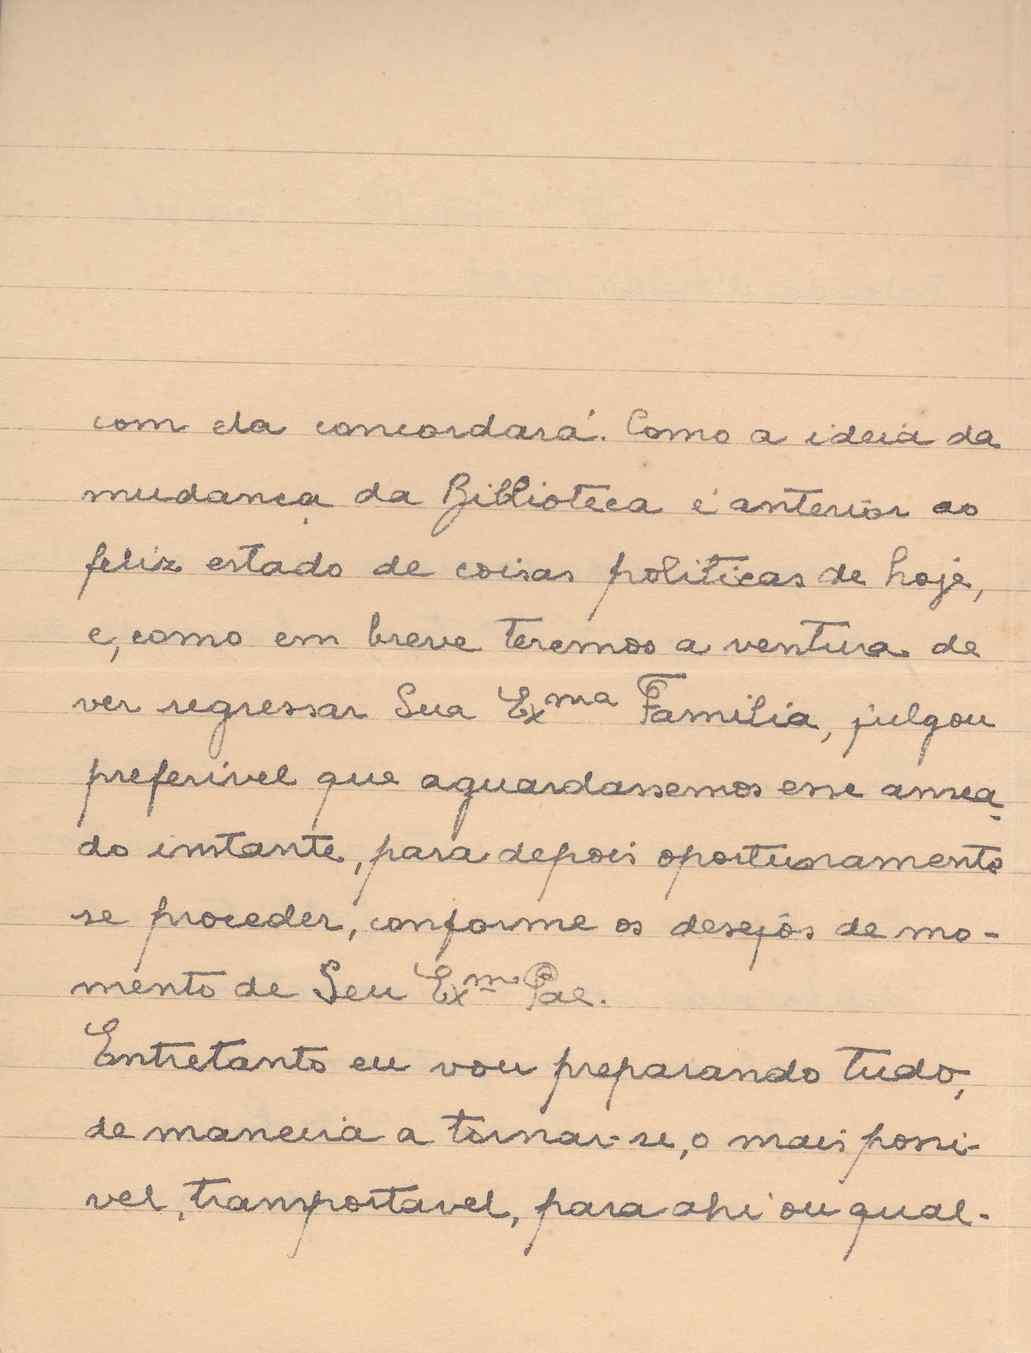 com ela concordará. Como a ideia da
mudança da Biblioteca é anterior ao
feliz estado de coisas politicas de hoje,
e, como em breve teremos a ventura de
ver regressar Sua Exma Familia, julgou
preferivel que aguardassemos esse ansea-
do instante, para depois oportunamente
se proceder, conforme os desejos de mo-
mento de Seu Exmo Pae.
Entretanto eu vou preparando tudo,
de maneira a tornar-se, o mais possi-
vel, transportavel, para ahi ou qual-